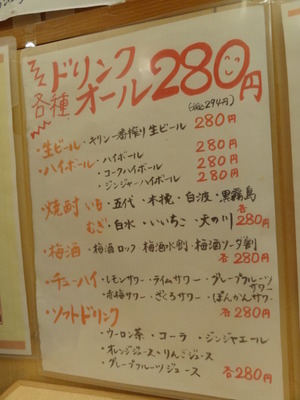 各種ドリンク
オール280円
(税込294円)
・生ビール・キリン一番搾り生ビール 280円
・ハイボール・ハイボール 280円
・コークハイボール 280円
・ジンジャーハイボール 280円
・焼酎 いも・五代・木挽・白波・黒霧島
むぎ・白水・いいちこ・天の川 各280円
・梅酒・梅酒ロック 梅酒水割・梅酒ソーダ割
各280円
・チューハイ・レモンサワー・ライムサワー・グレープフルーツサワー
・赤梅サワー・ざくろサワー・ぽんかんサワー
各280円
・ソフトドリンク
・ウーロン茶・コーラ・ジンジャエール
・オレンジジュース・りんごジュース
・グレープフルーツジュース 各280円